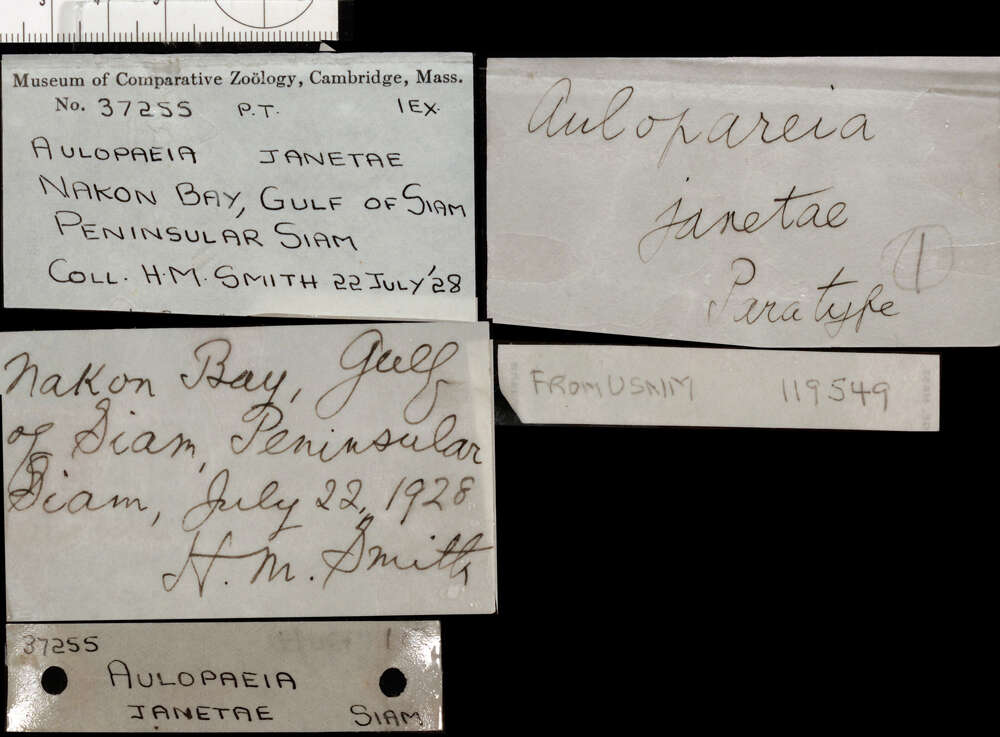 Museum of Comparative Zoölogy, Cambridge, Mass.
No. 37255 P.T. 1EX.
AULOPAEIA JANETAE
NAKON BAY, GULF OF SIAM
PENINSULAR SIAM
COLL. H.M. SMITH 22 JULY '28
Aulopareia
janetae
1
Paratype
Nakon Bay, Gulf
of Siam, Peninsular
Siam, July 22, 1928
H. M. Smith
FROM USNM 119549
37255 1
AULOPAEIA
JANETAE SIAM